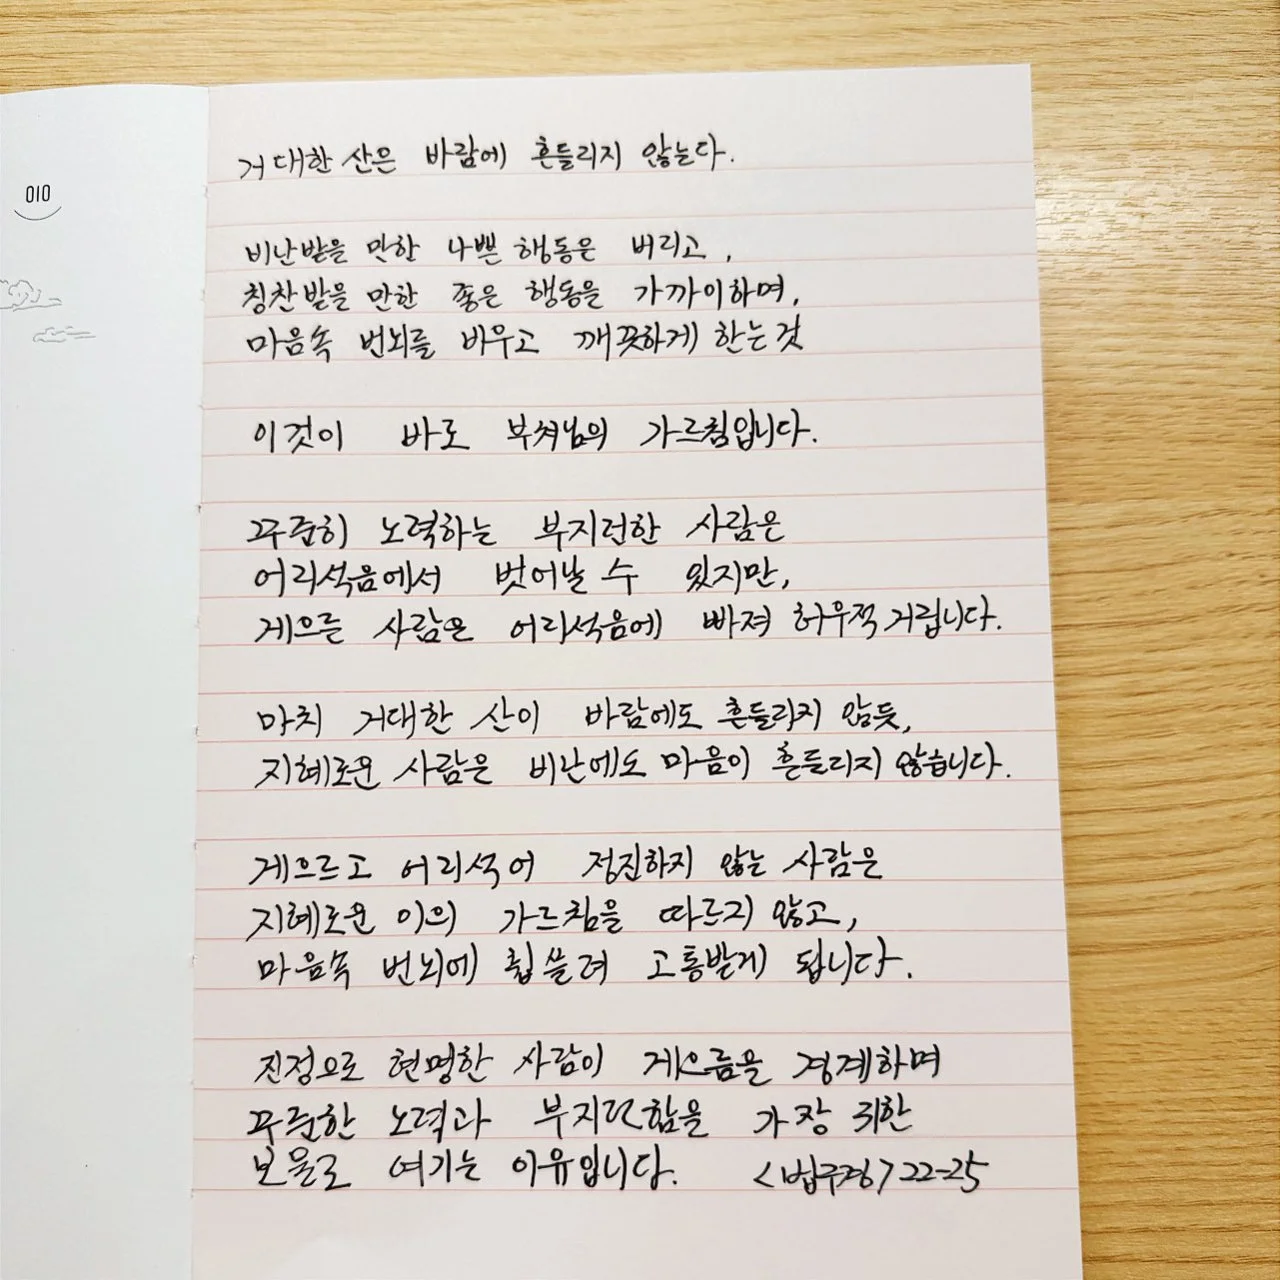 010
거대한 산은 바람에 흔들리지 않는다.
비난받을 만한 나쁜 행동은 버리고,
칭찬받을 만한 좋은 행동을 가까이하며,
마음속 번뇌를 비우고 깨끗하게 하는것
이것이 바로 부처님의 가르침입니다.
꾸준히 노력하는 부지런한 사람은
어리석음에서 벗어날 수 있지만,
게으른 사람은 어리석음에 빠져 허우적거립니다.
마치 거대한 산이 바람에도 흔들리지 않듯,
지혜로운 사람은 비난에도 마음이 흔들리지 않습니다.
게으르고 어리석어 정진하지 않는 사람은
지혜로운 이의 가르침을 따르지 않고,
마음속 번뇌에 휩쓸려 고통받게 됩니다.
진정으로 현명한 사람이 게으름을 경계하며
꾸준한 노력과 부지런함을 가장 귀한
보물로 여기는 이유입니다. <법구경> 22-25